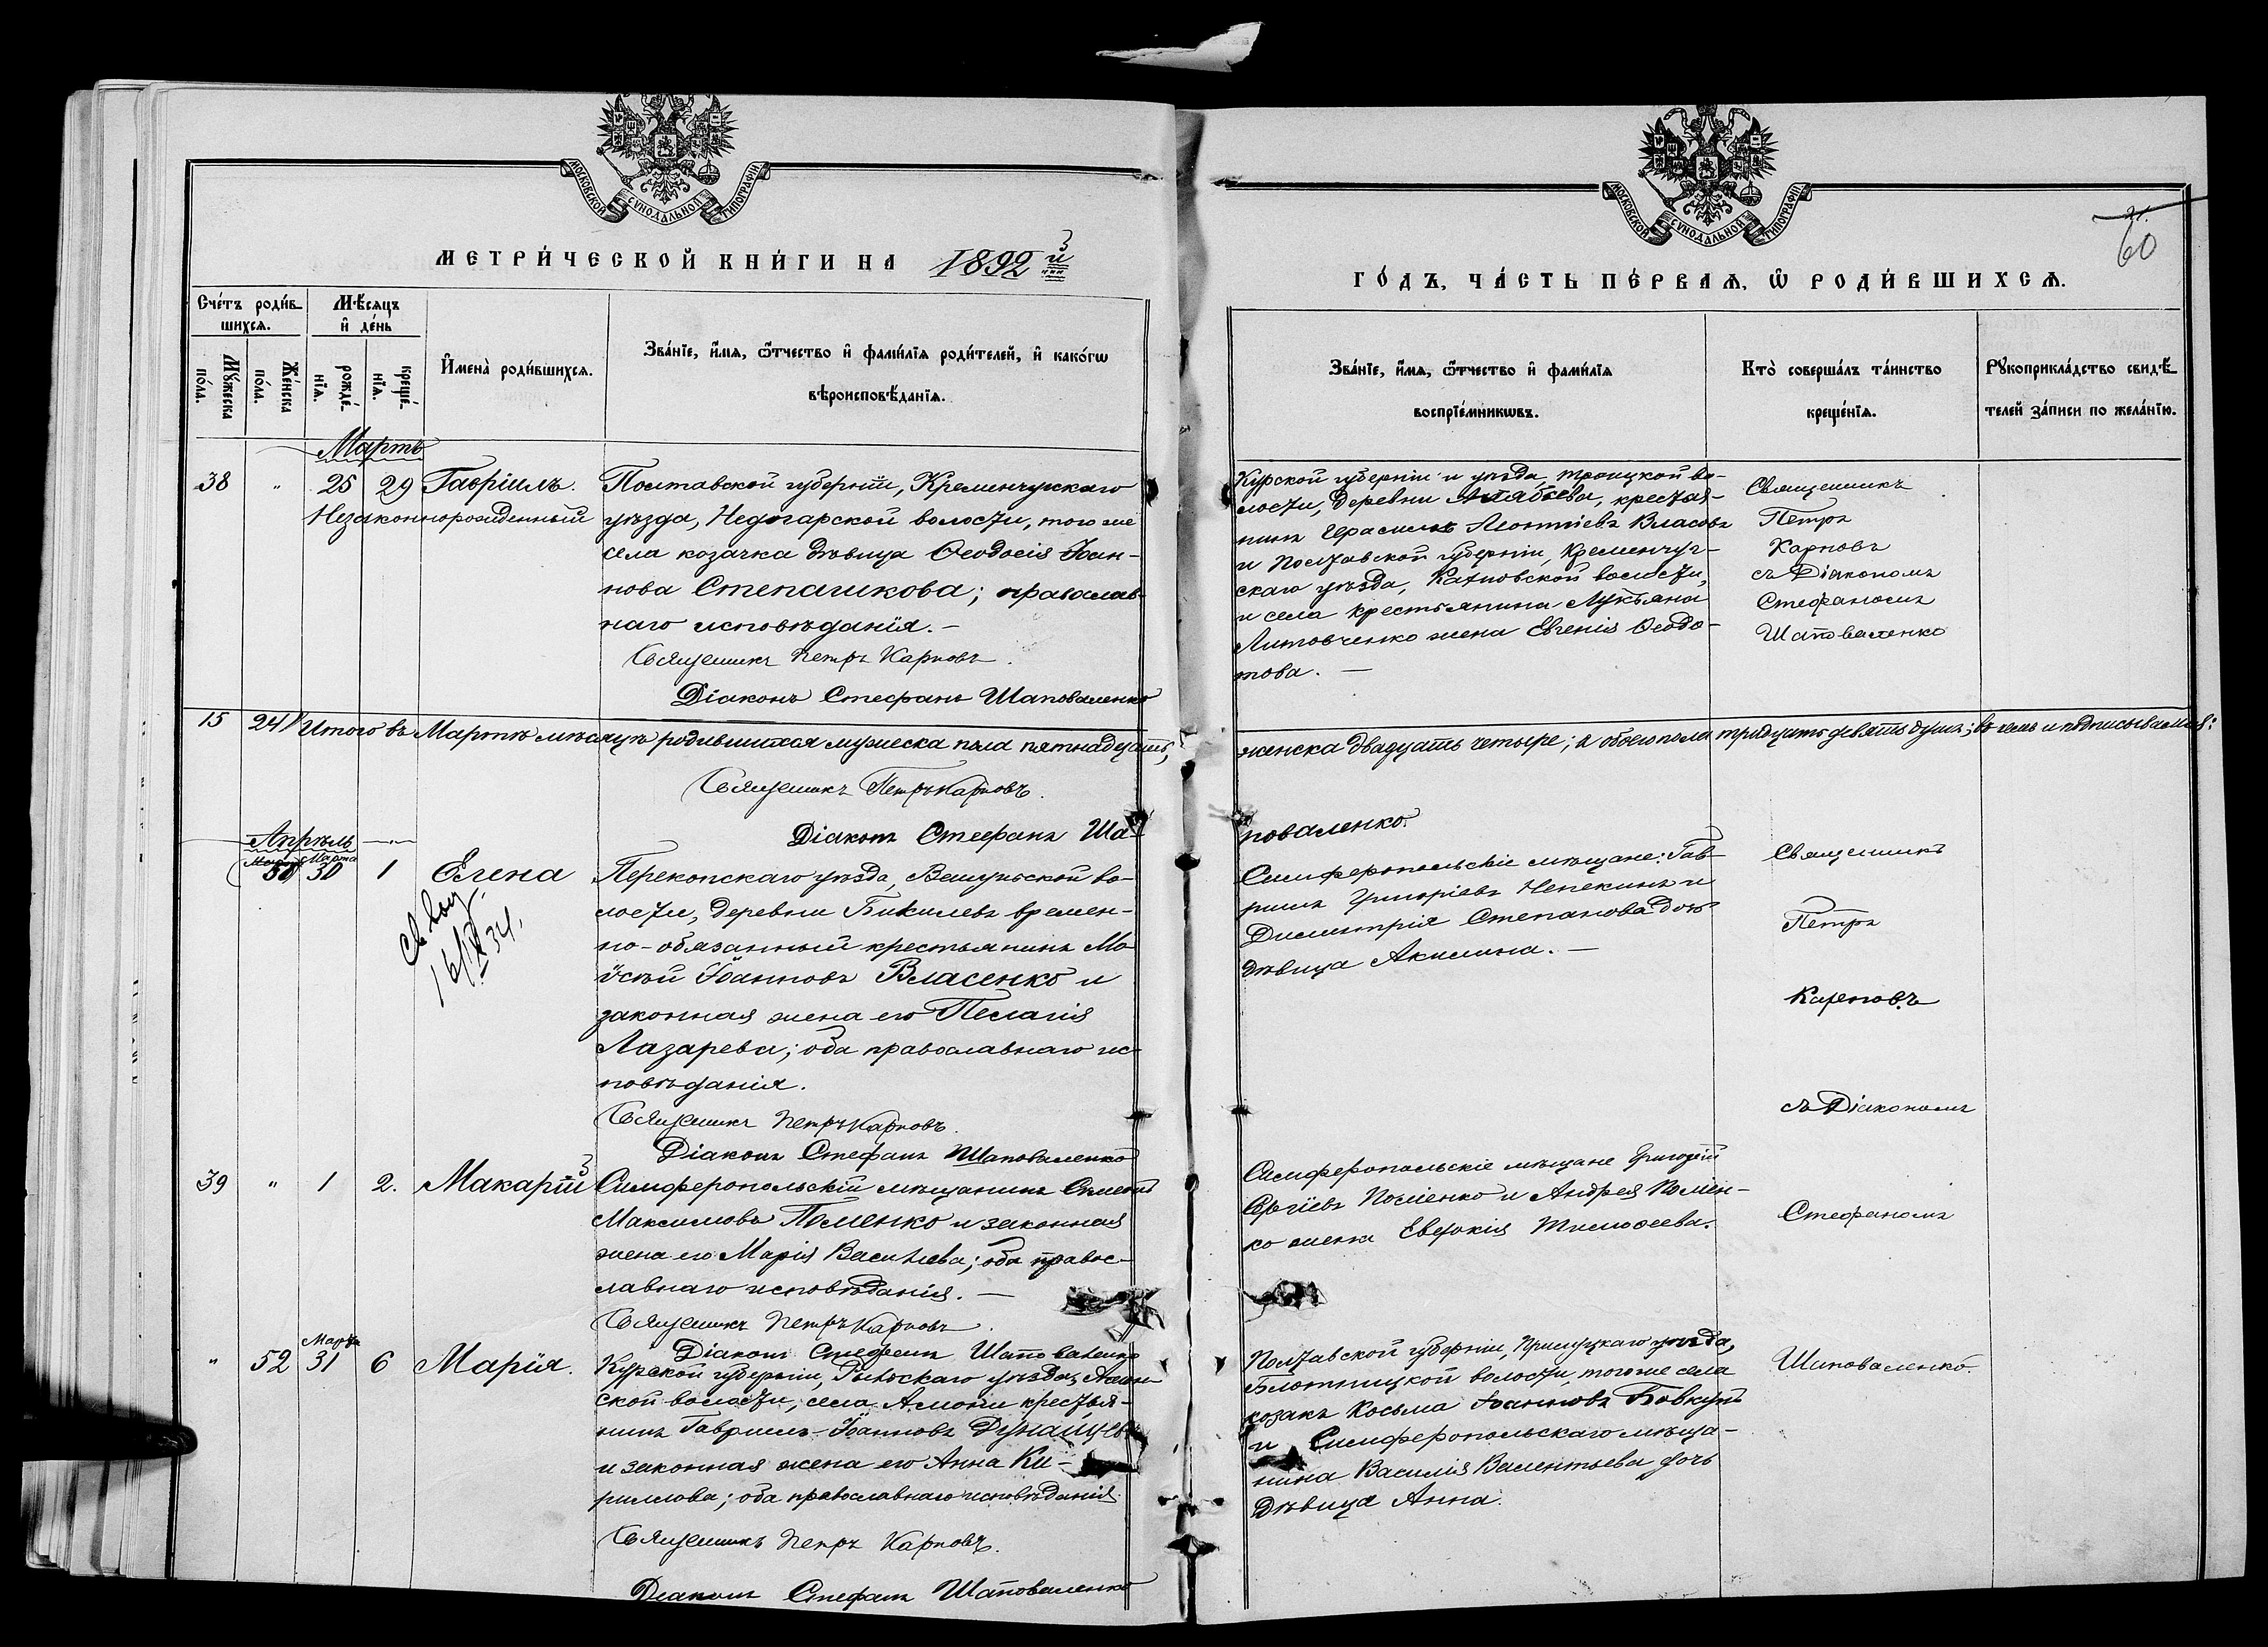 МОСКОВСКОЙ СѴНОДАЛЬНОЙ ТИПОГРАФІИ
МЕТРИ́ЧЕСКОЙ КНИ́ГИ НА 1892й
Сче́тъ роди́в-
шихсѧ.
Мѣ́сѧцъ
и҆ де́нь
Мꙋ́жеска
по́ла.
Же́нска
по́ла.
рожде́-
нїѧ.
креще́-
нїѧ.
И҆мена̀ роди́вшихсѧ.
Зва́нїе, и҆́мѧ, ѻ҆́тчество и҆ фами́лїѧ роди́телей, и҆ како́гѡ
вѣроисповѣ́данїѧ.
Мартъ
38 " 25 29 Гавріилъ.
Незаконнорожденный
Полтавской губерніи, Кременчугскаго
уѣзда, Недогарской волости, того же
села козачка дѣвица Ѳеодосія Іоан-
нова Степашкова; православ-
наго исповѣданія. —
Священникъ Петръ Карповъ.
Діаконъ Стефанъ Шаповаленко
15 24 Итого въ Мартѣ мѣсяцѣ родившихся мужеска пола пятнадцать,
Священникъ Петръ Карповъ.
Діаконъ Стефанъ Ша-
Апрѣль
Марта
30 1 Елена
16/IX 34.
Перекопскаго уѣзда,
волости, деревни Бикилевъ времен-
но-обязанный крестьянинъ Мо-
ѵсей Іоанновъ Власенко и
законная жена его Пелагія
Лазарева; оба православнаго ис-
повѣданія.
Священникъ Петръ Карповъ.
Діаконъ Стефанъ Шаповаленко
39 " 1 2. Макарій
Симферопольскій мѣщанинъ
Максимовъ Поменко и законная
жена его Марія Васильева; оба правос-
лавнаго исповѣданія. —
Священникъ Петръ Карповъ.
Діаконъ Стефанъ Шаповаленко
Марта
" 52 31 6 Марія.
Курской губерніи, Рыльскаго уѣзда, Амонь-
ской волости, села Амони крестья-
нинъ Гавріилъ Іоанновъ Дунайцевъ
и законная жена его Анна Ки-
риллова; оба православнаго исповѣданія.
Священникъ Петръ Карповъ.
Діаконъ Стефанъ Шаповаленко
МОСКОВСКОЙ СѴНОДАЛЬНОЙ ТИПОГРАФІИ
60
ГО́ДЪ, ЧА́СТЬ ПЕ́РВАѦ, Ѡ҆ РОДИ́ВШИХСѦ.
Зва́нїе, и҆́мѧ, ѻ҆́тчество и҆ фами́лїѧ
воспрїе́мникѡвъ.
Кто̀ соверша́лъ та́инство
креще́нїѧ.
Рꙋкоприкла́дство свидѣ́-
телей за́писи по жела́нїю.
Курской губерніи и уѣзда, Троицкой во-
лости, деревни Алябьева, крестья-
нинъ Герасимъ Леонтіевъ Власовъ
и Полтавской губерніи, Кременчуг-
скаго уѣзда, волости,
и села крестьянина Лукьяна
Литовченко жена Евгенія Ѳеодо-
това. —
Священникъ
Петръ
Карповъ
съ Діакономъ
Стефаномъ
Шаповаленко
женска двадцать четыре; а обоего пола тридцать девять душъ; въ чемъ и подписываемся:
поваленко.
Симферопольскіе мѣщане: Гав-
риилъ Григоріевъ Непекинъ и
Димитрія Степанова дочь
дѣвица Акилина. —
Священникъ
Петръ
Карповъ
съ Діакономъ
Стефаномъ
Шаповаленко.
Симферопольскіе мѣщане Григорій
Сергіевъ Поменко и Андрея Помен-
ко жена Евдокія Тимоѳеева.
Полтавской губерніи, Прилуцкаго уѣзда,
волости, того же села
козакъ Косьма Іоанновъ Бовкунъ
и Симферопольскаго мѣща-
нина Василія Валентьева дочь
дѣвица Анна.